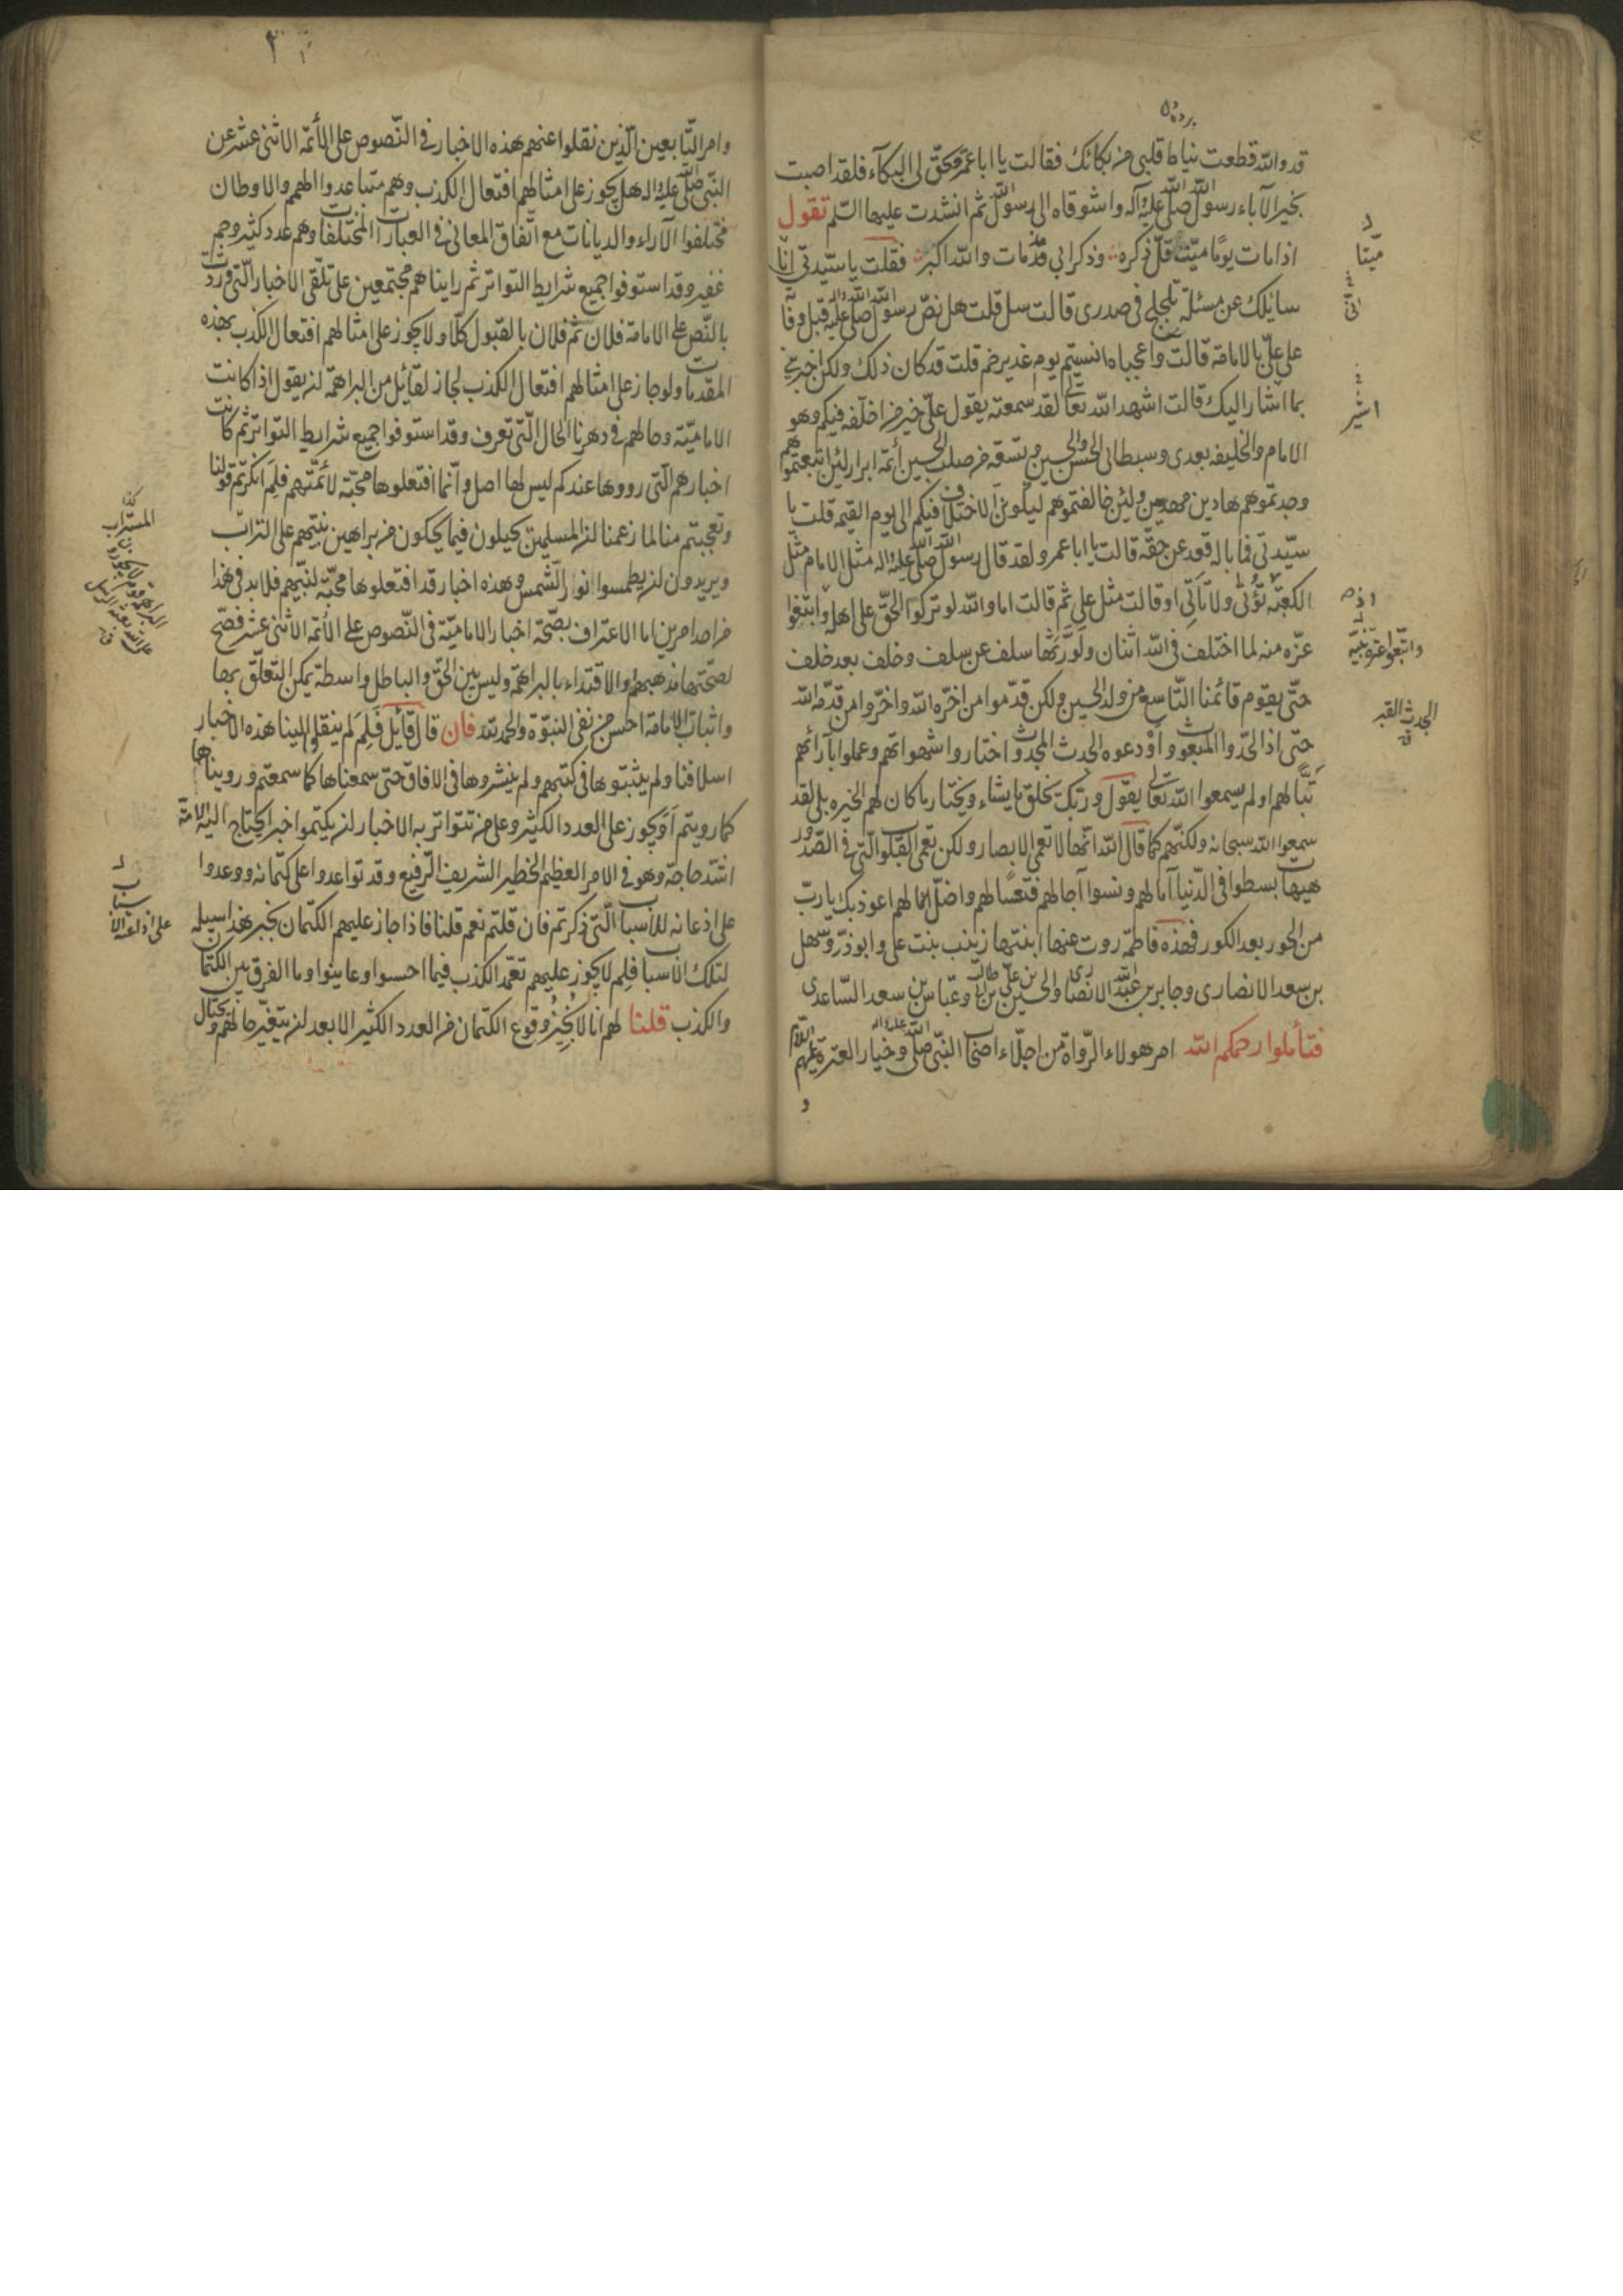 قد والله قطعت نياط قلبي من بكائك فقالت يا ابا عمر ويحق لي البكآء فلقد اصبت
بخير الآباء رسول الله صلى الله عليه وآله واشوقاه الى رسول الله ثم انشدت عليها السلم تقول
اذا مات يومًا ميّت قلّ ذكره وذكر ابي قد مات والله اكبر فقلت يا سيّدتي انّا
سائلك عن مسئلة تلجلج في صدري قالت سل قلت هل نصّ رسول الله صلى الله عليه وآله قبل وفا
على عليّ بالامامة قالت واعجباه انسيتم يوم غدير خم قلت قد كان ذلك ولكن اخبريني
بما اشار اليك قالت اشهد الله تعالى لقد سمعته يقول عليّ خير من اخلّفه فيكم وهو
الامام والخليفه بعدي وسبطاي الحسن والحسين وتسعة من صلب الحسين ائمّة ابرار لئن اتبعتموهم
وجدتموهم هادين مهديين ولئن خالفتموهم ليكونن الاختلاف فيكم الى يوم القيمه قلت يا
سيّدتي فما باله قعد عن حقّه قالت يا ابا عمر ولقد قال رسول الله صلى الله عليه واله مثل الامام مثل
الكعبة تؤتى ولا تأتي او قالت مثل علي ثم قالت اما والله لو تركوا الحقّ على اهله وابتغوا
عزّه منه لما اختلف في الله اثنان ولورّثها سلف عن سلف وخلف بعد خلف
حتّى يقوم قائمنا التّاسع من ولد الحسين ولكن قدّموا من اخّره الله واخّروا من قدّمه الله
حتى اذا لحدوا المبعوث واودعوه الجدث المجدوث اختاروا شهواتهم وعملوا بآرائهم
تبًّا لهم اولم يسمعوا الله تعالى يقول وربّك يخلق ما يشاء ويختار ما كان لهم الخيره بلى لقد
سمعوا الله سبحانه ولكنّهم كما قال الله انّها لا تعمى الابصار ولكن تعمى القلوب الّتي في الصّدور
هيهات بسطوا في الدّنيا آمالهم ونسوا آجالهم فتعسًا لهم واضلّ اعمالهم اعوذ بك يا ربّ
من الحور بعد الكور فهذه فاطمة روت عنها ابنتها زينب بنت علي وابو ذرّ وسهل
بن سعد الانصاري وجابر بن عبد الله الانصاري والحسين بن علي بن ابي طالب وعبّاس بن سعد السّاعدي
فتأملوا رحمكم الله امر هولاء الرّواة من اجلّاء اصحاب النبي صلى الله عليه واله وخيار العترة عليهم السلام
و
ميّتا
انّي
اشير
واتّبعوا عترة نبيّه
الجدث القبر
وامر التّابعين الّذين نقلوا عنهم هذه الاخبار في النّصوص على الأئمّة الاثنى عشر عن
النّبي صلى الله عليه واله هل يجوز على امثالهم افتعال الكذب وهم متباعدوا الهمم والاوطان
مختلفوا الآراء والديانات مع اتّفاق المعاني في العبارات المختلفات وهم عدد كثير وجم
غفير وقد استوفوا جميع شرايط التواتر ثم رايناهم مجتمعين على تلقّي الاخبار الّتي وردت
بالنّص على الامامة فلان ثم فلان بالقبول كلّا ولا يجوز على امثالهم افتعال الكذب بهذه
المقدمات ولو جاز على امثالهم افتعال الكذب لجاز لقائل من البراهمة ان يقول اذا كانت
الاماميّة وحالهم في دهرنا الحال الّتي تعرف وقد استوفوا جميع شرايط التواتر ثم كانت
اخبارهم الّتي رووها عندكم ليس لها اصل وانّما افتعلوها محبّة لائمّتهم فلم انكرتم قولنا
وتعجبتم منا لما زعمنا ان المسلمين يحيلون فيما يحكون من براهين نبيّهم على التراب
ويريدون ان يطمسوا انوار الشمس وهذه اخبار قد افتعلوها محبّة لنبيّهم فلا بد في هذا
من احد امرين اما الاعتراف بصّحة اخبار الاماميّة في النّصوص على الأئمّة الاثنى عشر فصحّ
لصحّتها مذهبهم والاقتداء بالبراهمة وليس بين الحق والباطل واسطة يمكن التعلّق بها
واثبات الامامة احسن من نفي النبوّة والحمد لله فان قال قائل فلم لم ينقلوا الينا هذه الاخبار
اسلافنا ولم يثبتوها في كتبهم ولم ينشروها في الافاق حتى سمعناها كما سمعتم ورويناها
كما رويتم اويجوز على العدد الكثير وعلى من تتواتر به الاخبار ان يكتموا خبرا يحتاج اليه الامة
اشدّ حاجة وهو في الامر العظيم الخطير الشريف الرّفيع وقد تواعدوا على كتمانه ووعدوا
على اذعانه للاسباب الّتي ذكرتم فان قلتم نعم قلنا فاذا جاز عليهم الكتمان بخبر هذا سبيله
لتلك الاسباب فلم لا يجوز عليهم تعمّد الكذب فيما احسوا وعاينوا وما الفرق بين الكتمان
والكذب قلنا لهم انا لا نجيز وقوع الكتمان من العدد الكثير الا بعد ان يتغيّر حالهم و
على اذاعة الاسباب